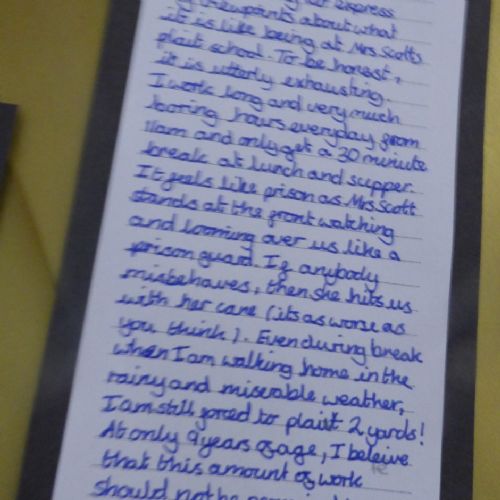 express
viewpoints about what
it is like being at Mrs Scotts
plait school. To be honest,
it is utterly exhausting.
I work long and very much
boring hours everyday from
11am and only get a 30 minute
break at lunch and supper.
It feels like prison as Mrs Scott
stands at the front watching
and looming over us like a
prison guard. If anybody
misbehaves, then she hits us
with her cane (its as worse as
you think). Even during break
when I am walking home in the
rainy and miserable weather,
I am still forced to plait 2 yards!
At only 9 years of age, I beleive
that this amount of work
should not be